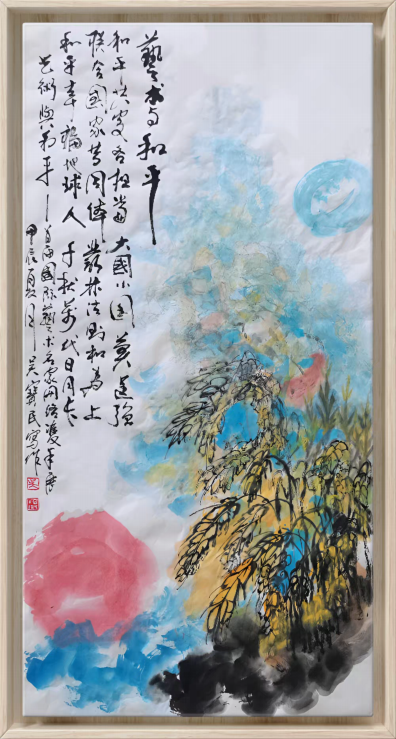 藝术与和平
和平共處各担当 大国小国莫逞强
联合国家共同体 丛林法则和为上
和平幸福地球人 千秋万代日月长
艺術與和平—首届国际藝术名家网络双年展
甲辰夏月 吴 民写作